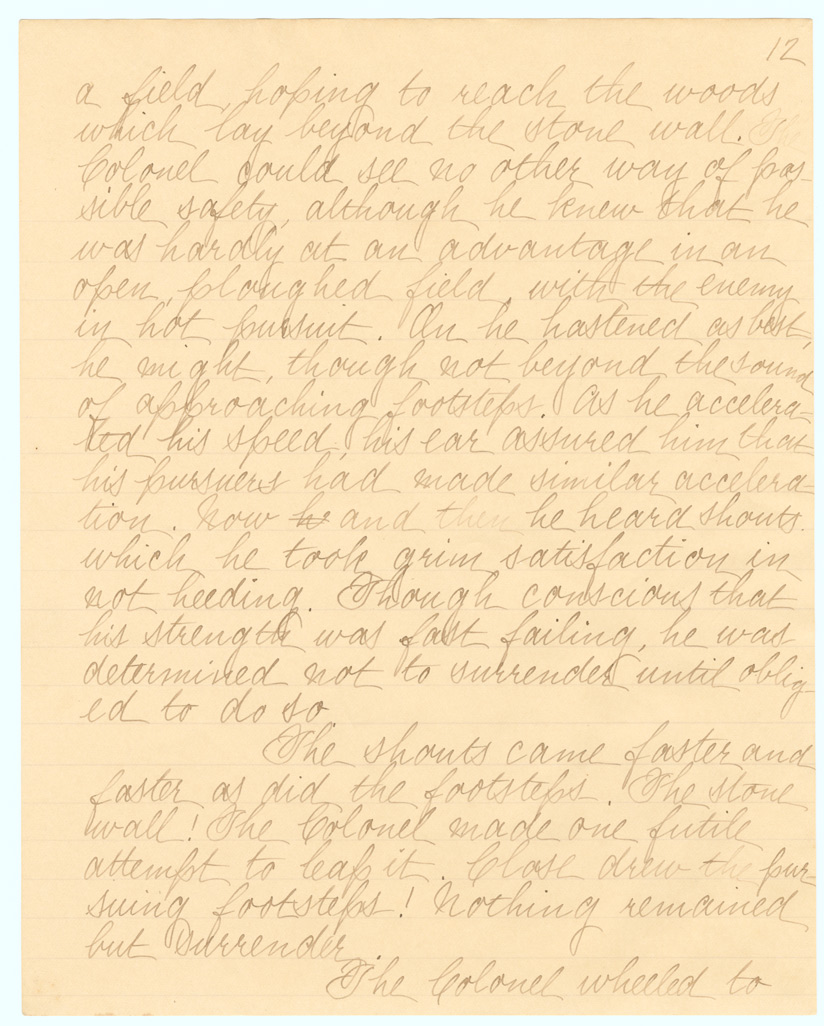 12
a field, hoping to reach the woods
which lay beyond the stone wall. The
Colonel could see no other way of pos-
sible safety, although he knew that he
was hardly at an advantage in an
open, ploughed field, with the enemy
in hot pursuit. On he hastened as best,
he might, though not beyond the sound
of approaching footsteps. As he accelera-
ted his speed, his ear assured him that
his pursuers had made similar accelera-
tion. Now he and then he heard shouts.
which he took grim satisfaction in
not heeding. Though conscious that
his strength was fast failing, he was
determined not to surrender until oblig-
ed to do so
The shouts came faster and
faster as did the footsteps. The stone
wall! The Colonel made one futile
attempt to leap it. Close drew the pur-
suing footsteps! Nothing remained
but surrender.
The Colonel wheeled to